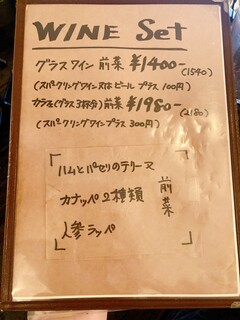 WINE Set
グラスワイン 前菜 ¥1400-
(1540)
(スパークリングワイン又は ビール プラス 100円)
カラフェ(グラス3杯分)前菜 ¥1980-
(2180)
(スパークリングワインプラス 300円)
ハムとパセリのテリーヌ
カナッペ 2種類
人参ラッペ
前菜